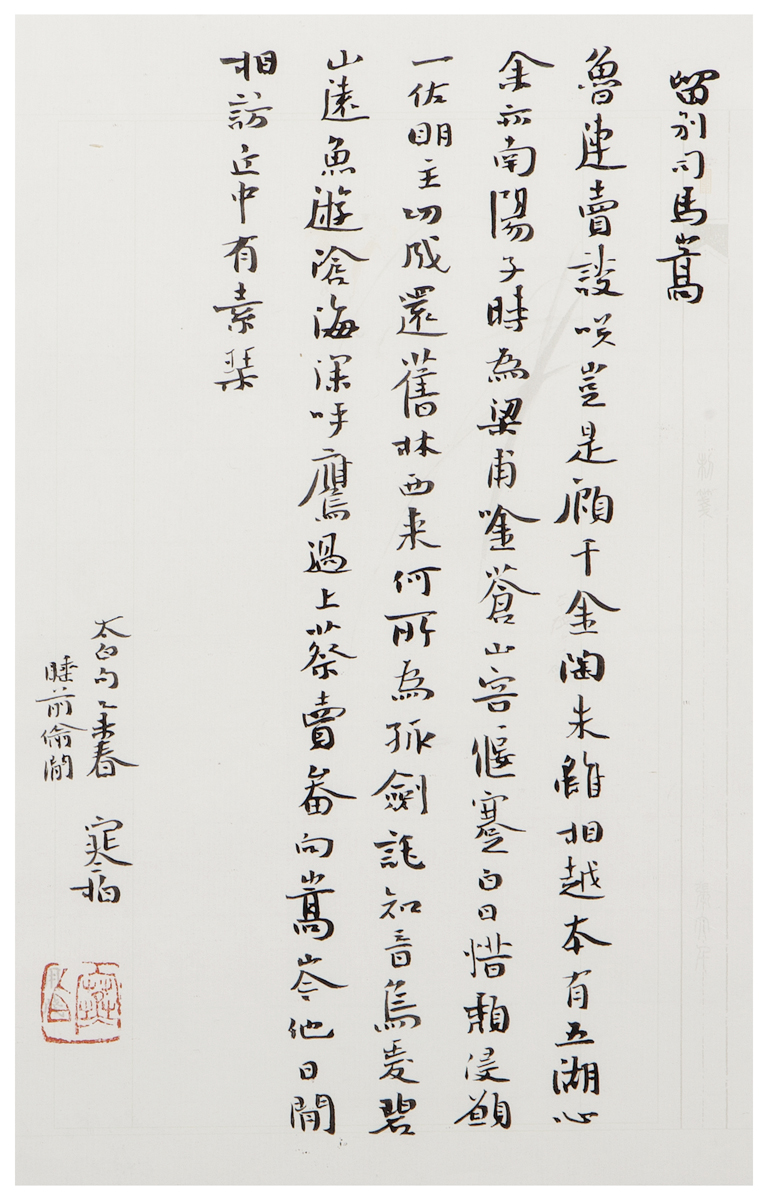 留別司馬嵩
魯連賣談咲豈是顧千金陶朱雖相越本有五湖心
余亦南陽子時為梁甫唫蒼山容偃蹇白日惜頹侵願
一佐明主功成還舊林西来何所為孤劍託知音鳥愛碧
山遠魚遊滄海深呼鷹過上蔡賣畚向嵩岑他日閒
相訪丘中有素琹
太白句乙未春
睡前偷閒